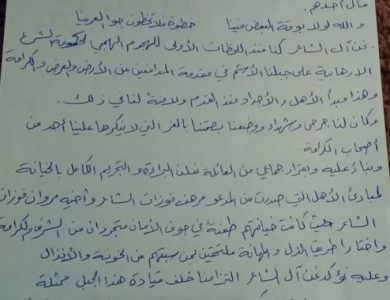 قال أحدهم:
والله لولا بوقة البعض فينا حطوة فلا تخطون جوا العرينا
نحن آل الشاعر كنا منذ اللحظات الأولى للهجوم الهمجي لحكومة الشرع
الارهابية على جبلنا الأشم في مقدمة المدافعين عن الأرض والعرض والكرامة
وهذا مبدأ الأهل والأجداد منذ القدم ولا منة لنا في ذلك.
وكان لنا جرحى وشهداء ووضعنا بصمتنا بالعز التي لا ينكرها علينا أحد من
أصحاب الكرامة
وبناء عليه وبقرار جماعي من العائلة نعلن البراءة والتجريم الكامل بالخيانة
لمبادئ الأهل التي صدرت من المدعو مرهف فوزات الشاعر وأخيه مروان فوزات
الشاعر حيث كانت خيانتهم طعنة في جوف الأمان متجردان من الشرف والكرامة
واختارا طريق الذل والمهانة ملتحقين بمن سبقهم من الخونة والأنذال
وعليه نؤكد نحن آل الشاعر التزامنا خلف قيادة هذا الجبل ممثلة